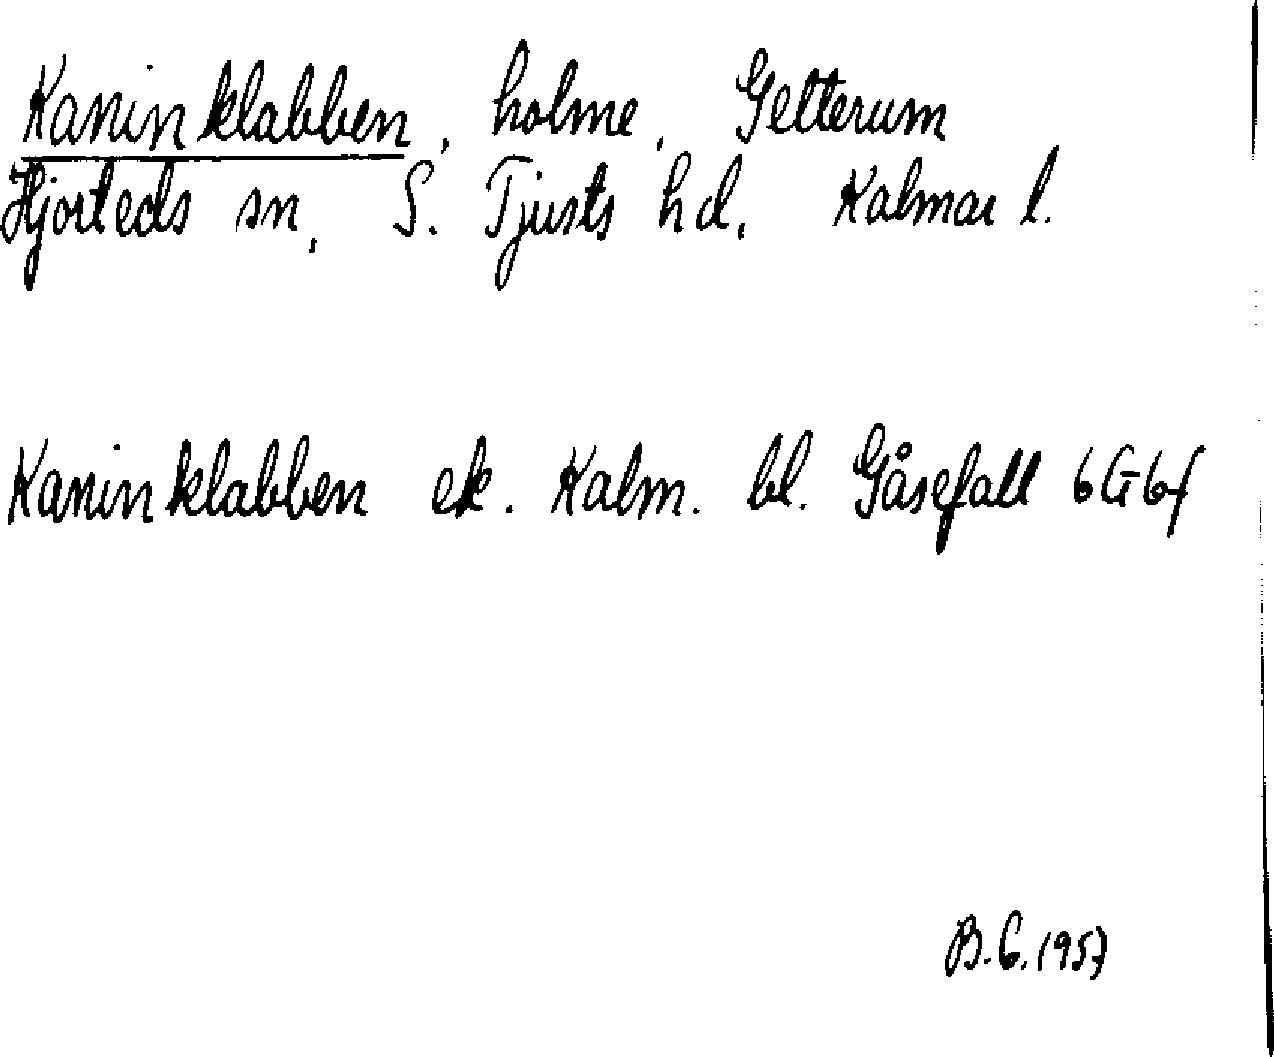 Kaninklabben, holme, Gelterum
Hjorteds sn, S. Tjusts hd, Kalmar l.
Kaninklabben ek. Kalm. bl. Gåsefall 6G6f
B.G. 1957